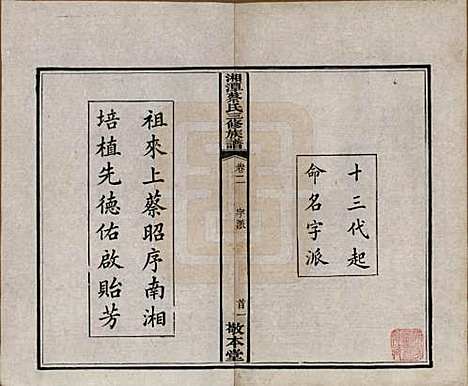 十三代起
命名字派
湘潭蔡氏三修族譜
卷二
字派
首一
敬本堂
祖來上蔡昭序南湘
培植先德佑啟貽芳